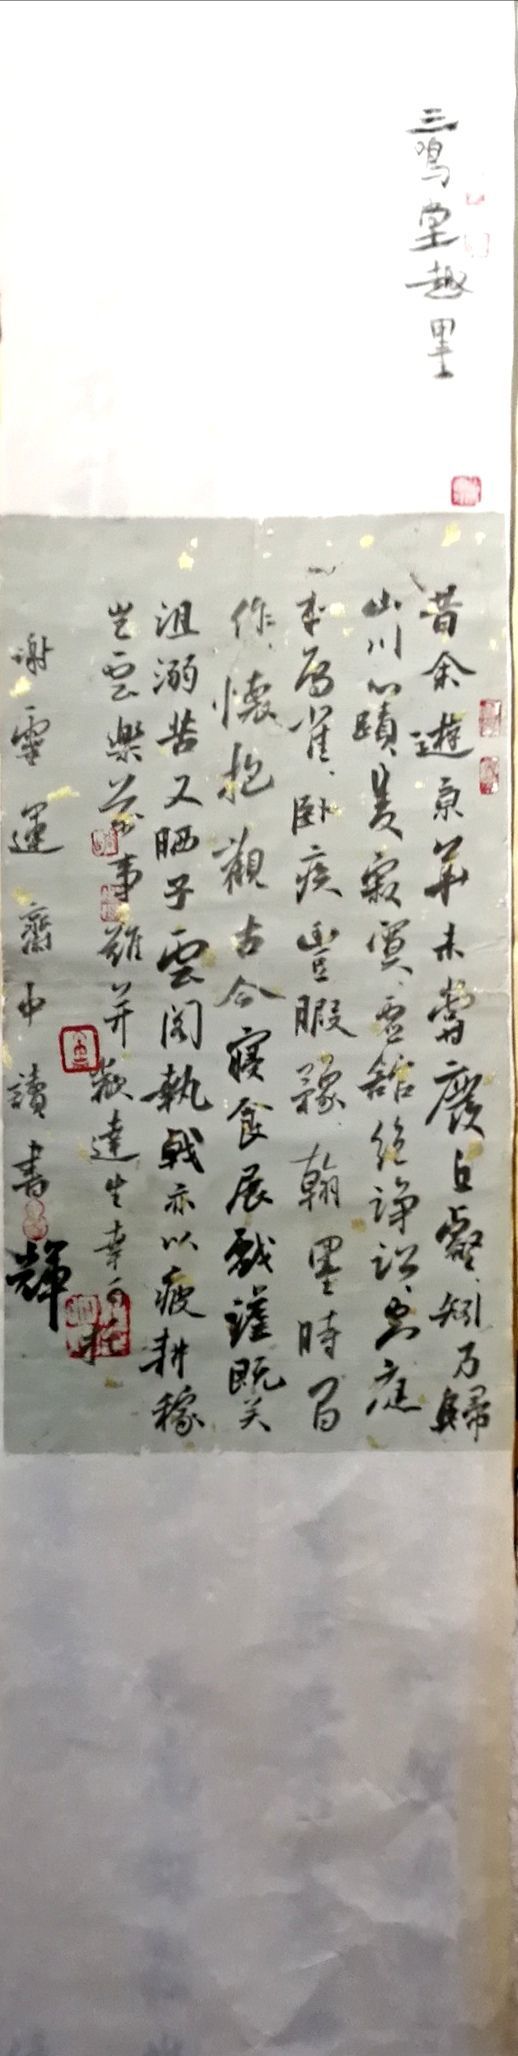 三鸣堂趣墨
昔余遊京華未嘗廢丘壑矧乃歸
山川心蹟雙寂寞虛館絕諍訟空庭
來鳥雀臥疾豐暇豫翰墨時間
作懷抱觀古今寢食展戲謔既笑
沮溺苦又晒子雲閣執戟亦以疲耕稼
豈雲樂萬事難并歡達生幸可托
謝靈運齋中讀書 輝